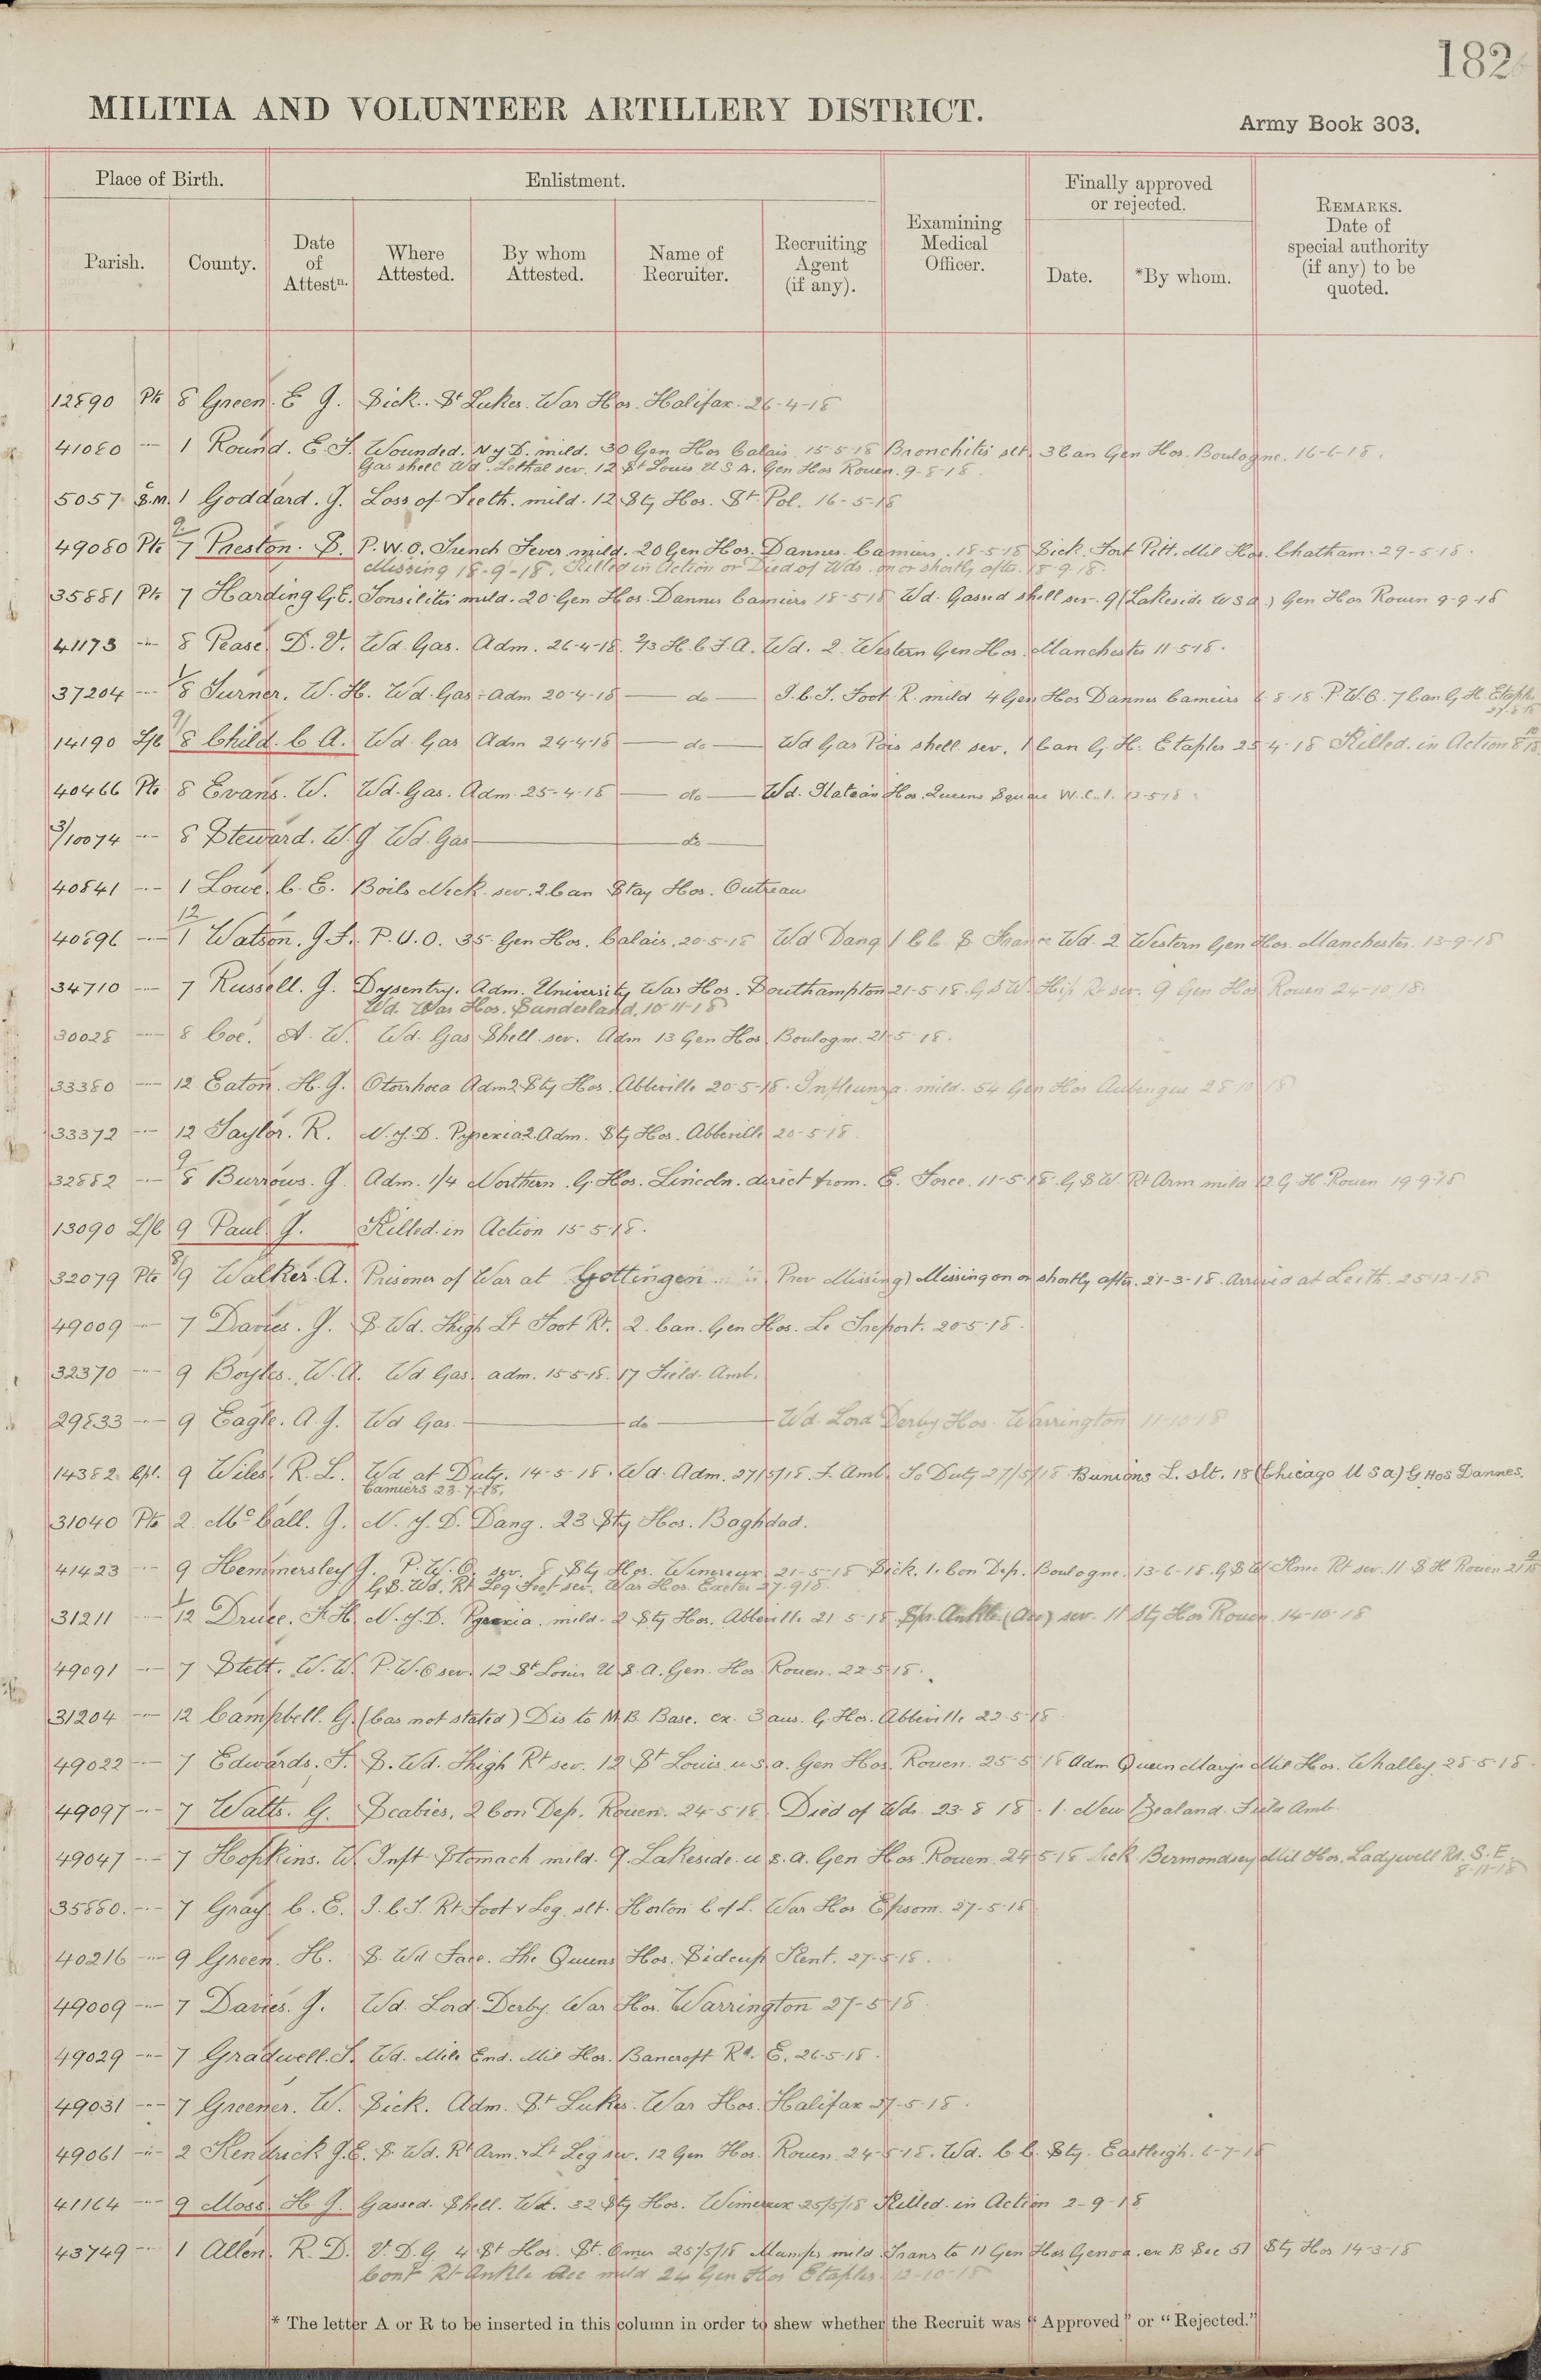 182
MILITIA AND VOLUNTEER ARTILLERY DISTRICT.
Army Book 303.
Place of Birth.
Enlistment.
Finally approved or rejected.
Parish.
County.
Date of Attestn.
Where Attested.
By whom Attested.
Name of Recruiter.
Recruiting Agent (if any).
Examining Medical Officer.
Date.
*By whom.
REMARKS. Date of special authority (if any) to be quoted.
12890 Pte 8 Green. E G. Sick. St Lukes. War Hos. Halifax. 26-4-18
41080 -"- 1 Round. E. J. Wounded. N Y D. mild. 30 Gen Hos Calais. 15-5-18 Bronchitis slt. 3 Can Gen Hos. Boulogne. 16-6-18.
Gas shell Wd. Lethal sev. 12 St Louis U S A. Gen Hos Rouen. 9-8-18
5057 S.M. 1 Goddard. J. Loss of Teeth. mild. 12 Sty Hos. St. Pol. 16-5-18
49080 Pte 9/7 Preston. S. P.U.O. Trench Fever mild. 20 Gen Hos. Dannes Camiers. 18-5-18 Sick. Fort Pitt. Mil Hos. Chatham. 29-5-18.
Missing 18-9-18. Killed in Action or Died of Wds. on or shortly after. 18-9-18.
35881 Pte 7 Harding G E. Tonsilitis mild. 20 Gen Hos. Dannes Camiers 18-5-18 Wd. Gassed shell sev. 9 (Lakeside U S A) Gen Hos Rouen 9-9-18
41173 -"- 8 Pease. D. V. Wd. Gas. Adm. 26-4-18. 2/3 H. C. F. A. Wd. 2. Western Gen Hos. Manchester 11-5-18.
37204 -"- 1/8 Turner. W. H. Wd. Gas. Adm 20-4-18 — do — I. C. T. Foot R. mild 4 Gen Hos Dannes Camiers 6-8-18 P.U.O. 7 Can G H. Etaples
27-8-18
14190 L/C 9/8 Child. C A. Wd. Gas Adm 24-4-18 — do — Wd Gas Pois shell sev. 1 Can G. H. Etaples 25-4-18 Killed. in Action 8/10/18
40466 Pte 8 Evans. W. Wd. Gas. Adm. 25-4-18 — do — Wd. Hos. Queens Square W.C.1. 13-5-18
3/10074 -"- 8 Steward. W. G Wd. Gas — do —
40841 -"- 1 Lowe. C. E. Boils Neck sev. 2 Can Stay Hos. Outreau
40896 -"- 12/1 Watson. J F. P.U.O. 35 Gen Hos. Calais. 20-5-18 Wd Dang 1 C C S France Wd. 2 Western Gen Hos. Manchester. 13-9-18
34710 -"- 7 Russell. J. Dysentry. Adm. University War Hos. Southampton 21-5-18. G S W. Hip R sev. 9 Gen Hos Rouen 24-10-18.
Wd. War Hos. Sunderland. 10-11-18
30028 -"- 8 Coe. A. W. Wd. Gas Shell sev. Adm 13 Gen Hos Boulogne. 21-5-18.
33380 -"- 12 Eaton. H. G. Otorrhoea Adm 2 Sty Hos. Abbeville 20-5-18. Influenza. mild. 54 Gen Hos 28-10-18
33372 -"- 12 Taylor. R. N. Y. D. Pyrexia 2. Adm. Sty Hos. Abbeville 20-5-18.
32882 -"- 9/8 Burrows. G. Adm. 1/4 Northern. G. Hos. Lincoln. direct from. E. Force. 11-5-18. G S W Rt Arm mild 12 G H Rouen 19-9-18
13090 L/C 9 Paul. J. Killed. in Action 15-5-18.
32079 Pte 8/9 Walker. A. Prisoner of War at Gottingen (Prev Missing) Missing on or shortly after. 21-3-18. Arrived at Leith. 25-12-18
49009 -"- 7 Davies. J. S. Wd. Thigh Lt Foot Rt. 2. Can. Gen Hos. Le Treport. 20-5-18.
32370 -"- 9 Boyles. W. A. Wd Gas. adm. 15-5-18. 17 Field. Amb.
29833 -"- 9 Eagle. A. J. Wd Gas. — do — Wd Lord Derby Hos. Warrington 11-10-18
14382 Cpl. 9 Wiles. R. L. Wd at Duty. 14-5-18. Wd. Adm. 27/5/18. F. Amb. To Duty 27/5/18 Bunions L. slt. 18 (Chicago U S A) G Hos Dannes.
Camiers 23-7-18.
31040 Pte 2 McCall. J. N. Y. D. Dang. 23 Sty Hos. Baghdad.
41423 -"- 9 Hemmersley J. P. U. O. sev. 8 Sty Hos. Wimereux 21-5-18 Sick. 1. Con Dep. Boulogne. 13-6-18. G S W Knee Rt sev. 11 S H Rouen
G. S. Wd. Rt Leg Foot sev. War Hos. Exeter 27-9-18.
31211 -"- 1/12 Druce. F. H. N. Y. D. Pyrexia. mild. 2 Sty Hos. Abbeville 21-5-18 Spr. Ankle (Acc) sev. 11 Sty Hos Rouen. 14-10-18
49091 -"- 7 Stett. W. W. P.U.O sev. 12 St Louis U. S. A. Gen. Hos Rouen. 22-5-18.
31204 -"- 12 Campbell. G. (Cas not stated) Dis to M.B. Base. ex. 3 aus. G. Hos. Abbeville 22-5-18
49022 -"- 7 Edwards. T. S. Wd. Thigh Rt sev. 12 St Louis u s. a. Gen Hos. Rouen. 25-5-18 Adm Queen Marys Mil Hos. Whalley. 28-5-18
49097 -"- 7 Watts. G. Scabies. 2 Con Dep. Rouen. 24-5-18. Died of Wds. 23-8-18. 1. New Zealand. Field Amb.
49047 -"- 7 Hopkins. W. Inft. Stomach mild. 9. Lakeside. u s. a. Gen Hos. Rouen. 24-5-18 Sick Bermondsey Mil Hos. Ladywell Rd. S. E.
8-11-18
35880. -"- 7 Gray C. E. I. C. T. Rt Foot & Leg. slt. Horton C of L. War Hos Epsom. 27-5-18
40216 -"- 9 Green. H. S. Wd Face. The Queens Hos. Sidcup Kent. 27-5-18.
49009 -"- 7 Davies. J. Wd. Lord. Derby. War Hos. Warrington 27-5-18
49029 -"- 7 Gradwell. T. Wd. Mile End. Mil Hos. Bancroft Rd. E. 26-5-18.
49031 -"- 7 Greener. W. Sick. Adm. St. Lukes. War Hos. Halifax 27-5-18.
49061 -"- 2 Kendrick J. E. S. Wd. Rt Arm. & Lt Leg sev. 12 Gen Hos. Rouen. 24-5-18. Wd. C C. Sty. Eastleigh. 6-7-18
41164 -"- 9 Moss. H J. Gassed. Shell. Wd. 32 Sty Hos. Wimereux 25/5/18 Killed. in Action 2-9-18
43749 -"- 1 Allen. R. D. V. D. G. 4 St Hos. St. Omer 25/5/18 Mumps mild Trans to 11 Gen Hos Genoa. ex B Sec 51 Sty Hos 14-3-18
Cont Rt Ankle Acc mild 24 Gen Hos Etaples. 12-10-18
* The letter A or R to be inserted in this column in order to shew whether the Recruit was “Approved” or “Rejected.”